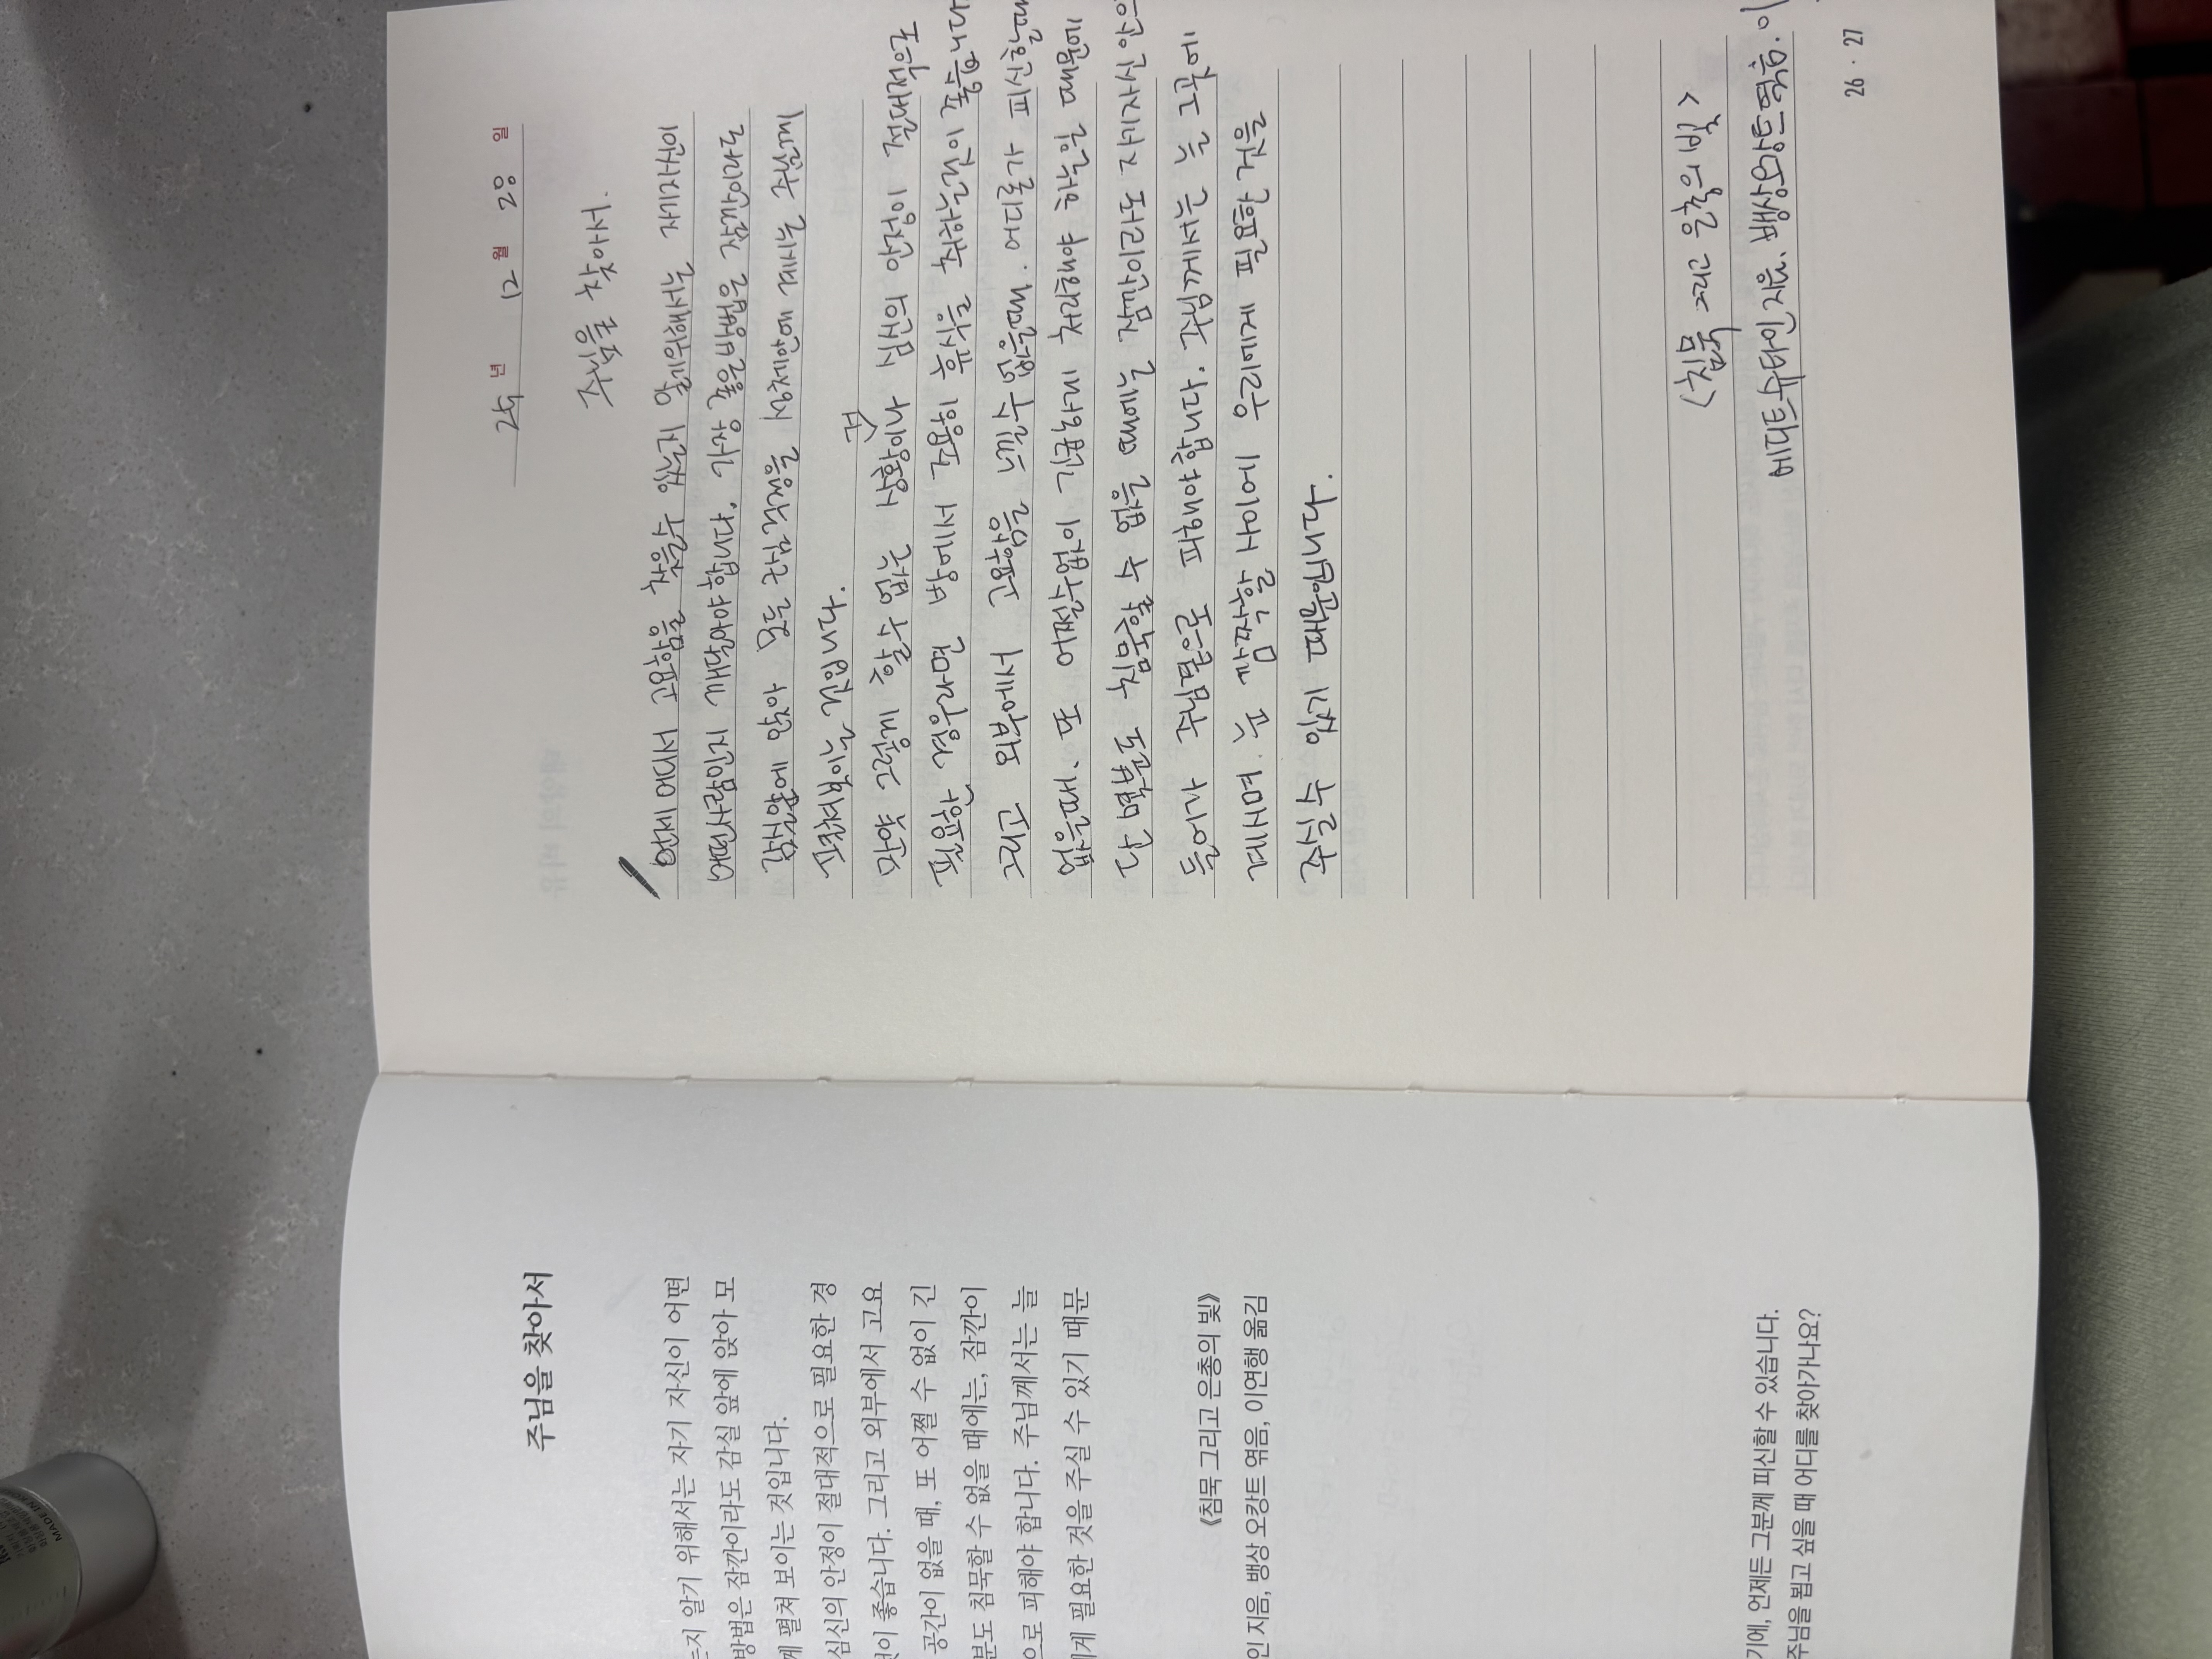 주님을 찾아서
는지 알기 위해서는 자기 자신이 어떤
방법은 잠깐이라도 감실 앞에 앉아 모
께 펼쳐 보이는 것입니다.
심신의 안정이 절대적으로 필요한 경
것이 좋습니다. 그리고 외부에서 고요
공간이 없을 때, 또 어쩔 수 없이 긴
분도 침묵할 수 없을 때에는, 잠깐이
으로 피해야 합니다. 주님께서는 늘
에게 필요한 것을 주실 수 있기 때문
《침묵 그리고 은총의 빛》
인 지음, 뱅상 오캉트 엮음, 이연행 옮김
기에, 언제든 그분께 피신할 수 있습니다.
주님을 뵙고 싶을 때 어디를 찾아가나요?
25 년 12 월 28 일
주님을 찾아서.
언제 어디서 고요함을 찾을수 있는지 알기위해서는 자기자신이
어떤사람인지 깨달아야합니다. 가장 좋은방법은 잠깐이라도
감실앞에 앉아 모든 근심걱정을 성체안에 계시는 주님께
펼쳐보이는 것입니다.
만약 그렇게 할수 없는 상황이거나 심신의 안정이 절대적으로
필요한 경우라면 방에서 조용히 휴식을 취하는것이 좋습니다
그리고 외부에서 고요함을 느낄수 없을때. 어디론가 피신할때
없을때, 또 어쩔수없이 긴급하게 처리해야 하는일 때문에
단 몇분도 침묵할 수 없을 때에는 잠깐이라도
들어가 주님품으로 피해야합니다. 주님께서는 늘 그곳에
계시며. 눈 깜짝할 사이에 우리에게 필요한 것을
주실수 있기 때문입니다.
<침묵 그리고 은총의 빛>
에디트슈타인지음, 뱅상오캉트엮음. 이
26 · 27
MADE IN